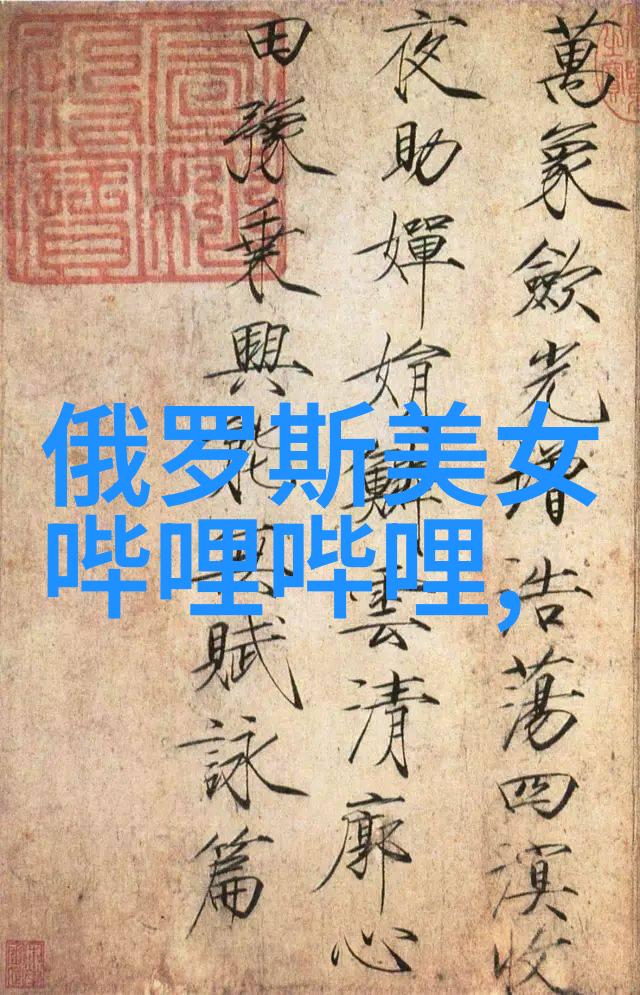 萬象歛光增浩蕩四溟收
夜助嬋娟鱗雲清廓心
田豫乗興能無賦詠篇
俄罗斯美女
哔哩哔哩,